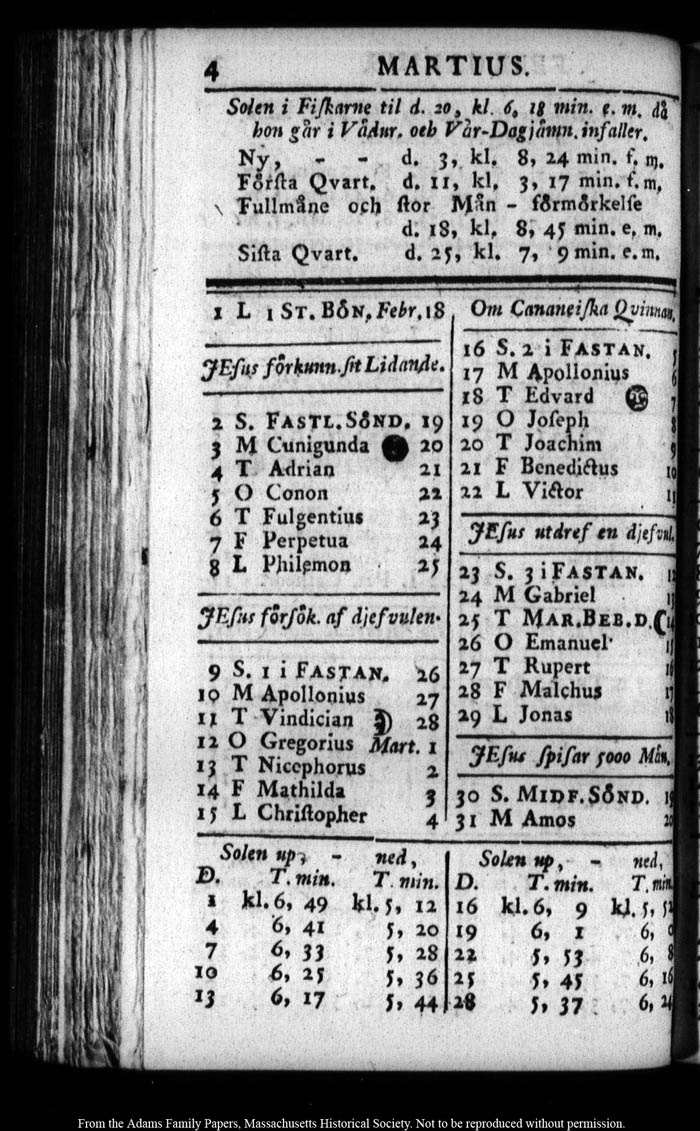 4 MARTIUS.
Solen i Fiſkarne til d. 20, kl. 6, 18 min. e. m. då
hon går i Vådur. och Vår-Dagjåmn. infaller.
Ny, - - d. 3, kl. 8, 24 min. f. m.
Fôrſta Qvart. d. 11, kl. 3, 17 min. f. m.
Fullmåne och ſtor Mån - fôrmôrkelſe
d. 18, kl. 8, 45 min. e. m.
Siſta Qvart. d. 25, kl. 7, 9 min. e. m.
1 L 1 ST. BÔN, Febr. 18
JEſus fôrkunn. ſit Lidande.
2 S. FASTL. SÔND. 19
3 M Cunigunda 20
4 T Adrian 21
5 O Conon 22
6 T Fulgentius 23
7 F Perpetua 24
8 L Philemon 25
JEſus fôrſôk. af djefvulen.
9 S. 1 i FASTAN. 26
10 M Apollonius 27
11 T Vindician 28
12 O Gregorius Mart. 1
13 T Nicephorus 2
14 F Mathilda 3
15 L Chriſtopher 4
Om Cananeiſka Qvinnan.
16 S. 2 i FASTAN. 5
17 M Apollonius 6
18 T Edvard 7
19 O Joſeph 8
20 T Joachim 9
21 F Benedictus 10
22 L Victor 11
JEſus utdref en djefvul.
23 S. 3 i FASTAN. 12
24 M Gabriel 13
25 T MAR. BEB. D. 14
26 O Emanuel 15
27 T Rupert 16
28 F Malchus 17
29 L Jonas 18
JEſus ſpiſar 5000 Mån.
30 S. MIDF. SÔND. 19
31 M Amos 20
Solen up, - ned,
D. T. min. T. min.
1 kl. 6, 49 kl. 5, 12
4 6, 41 5, 20
7 6, 33 5, 28
10 6, 25 5, 36
13 6, 17 5, 44
Solen up, - ned,
D. T. min. T. min.
16 kl. 6, 9 kl. 5, 52
19 6, 1 6, 0
22 5, 53 6, 8
25 5, 45 6, 16
28 5, 37 6, 24
From the Adams Family Papers, Massachusetts Historical Society. Not to be reproduced without permission.